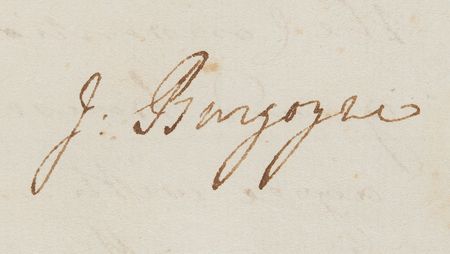 J: Burgoyne